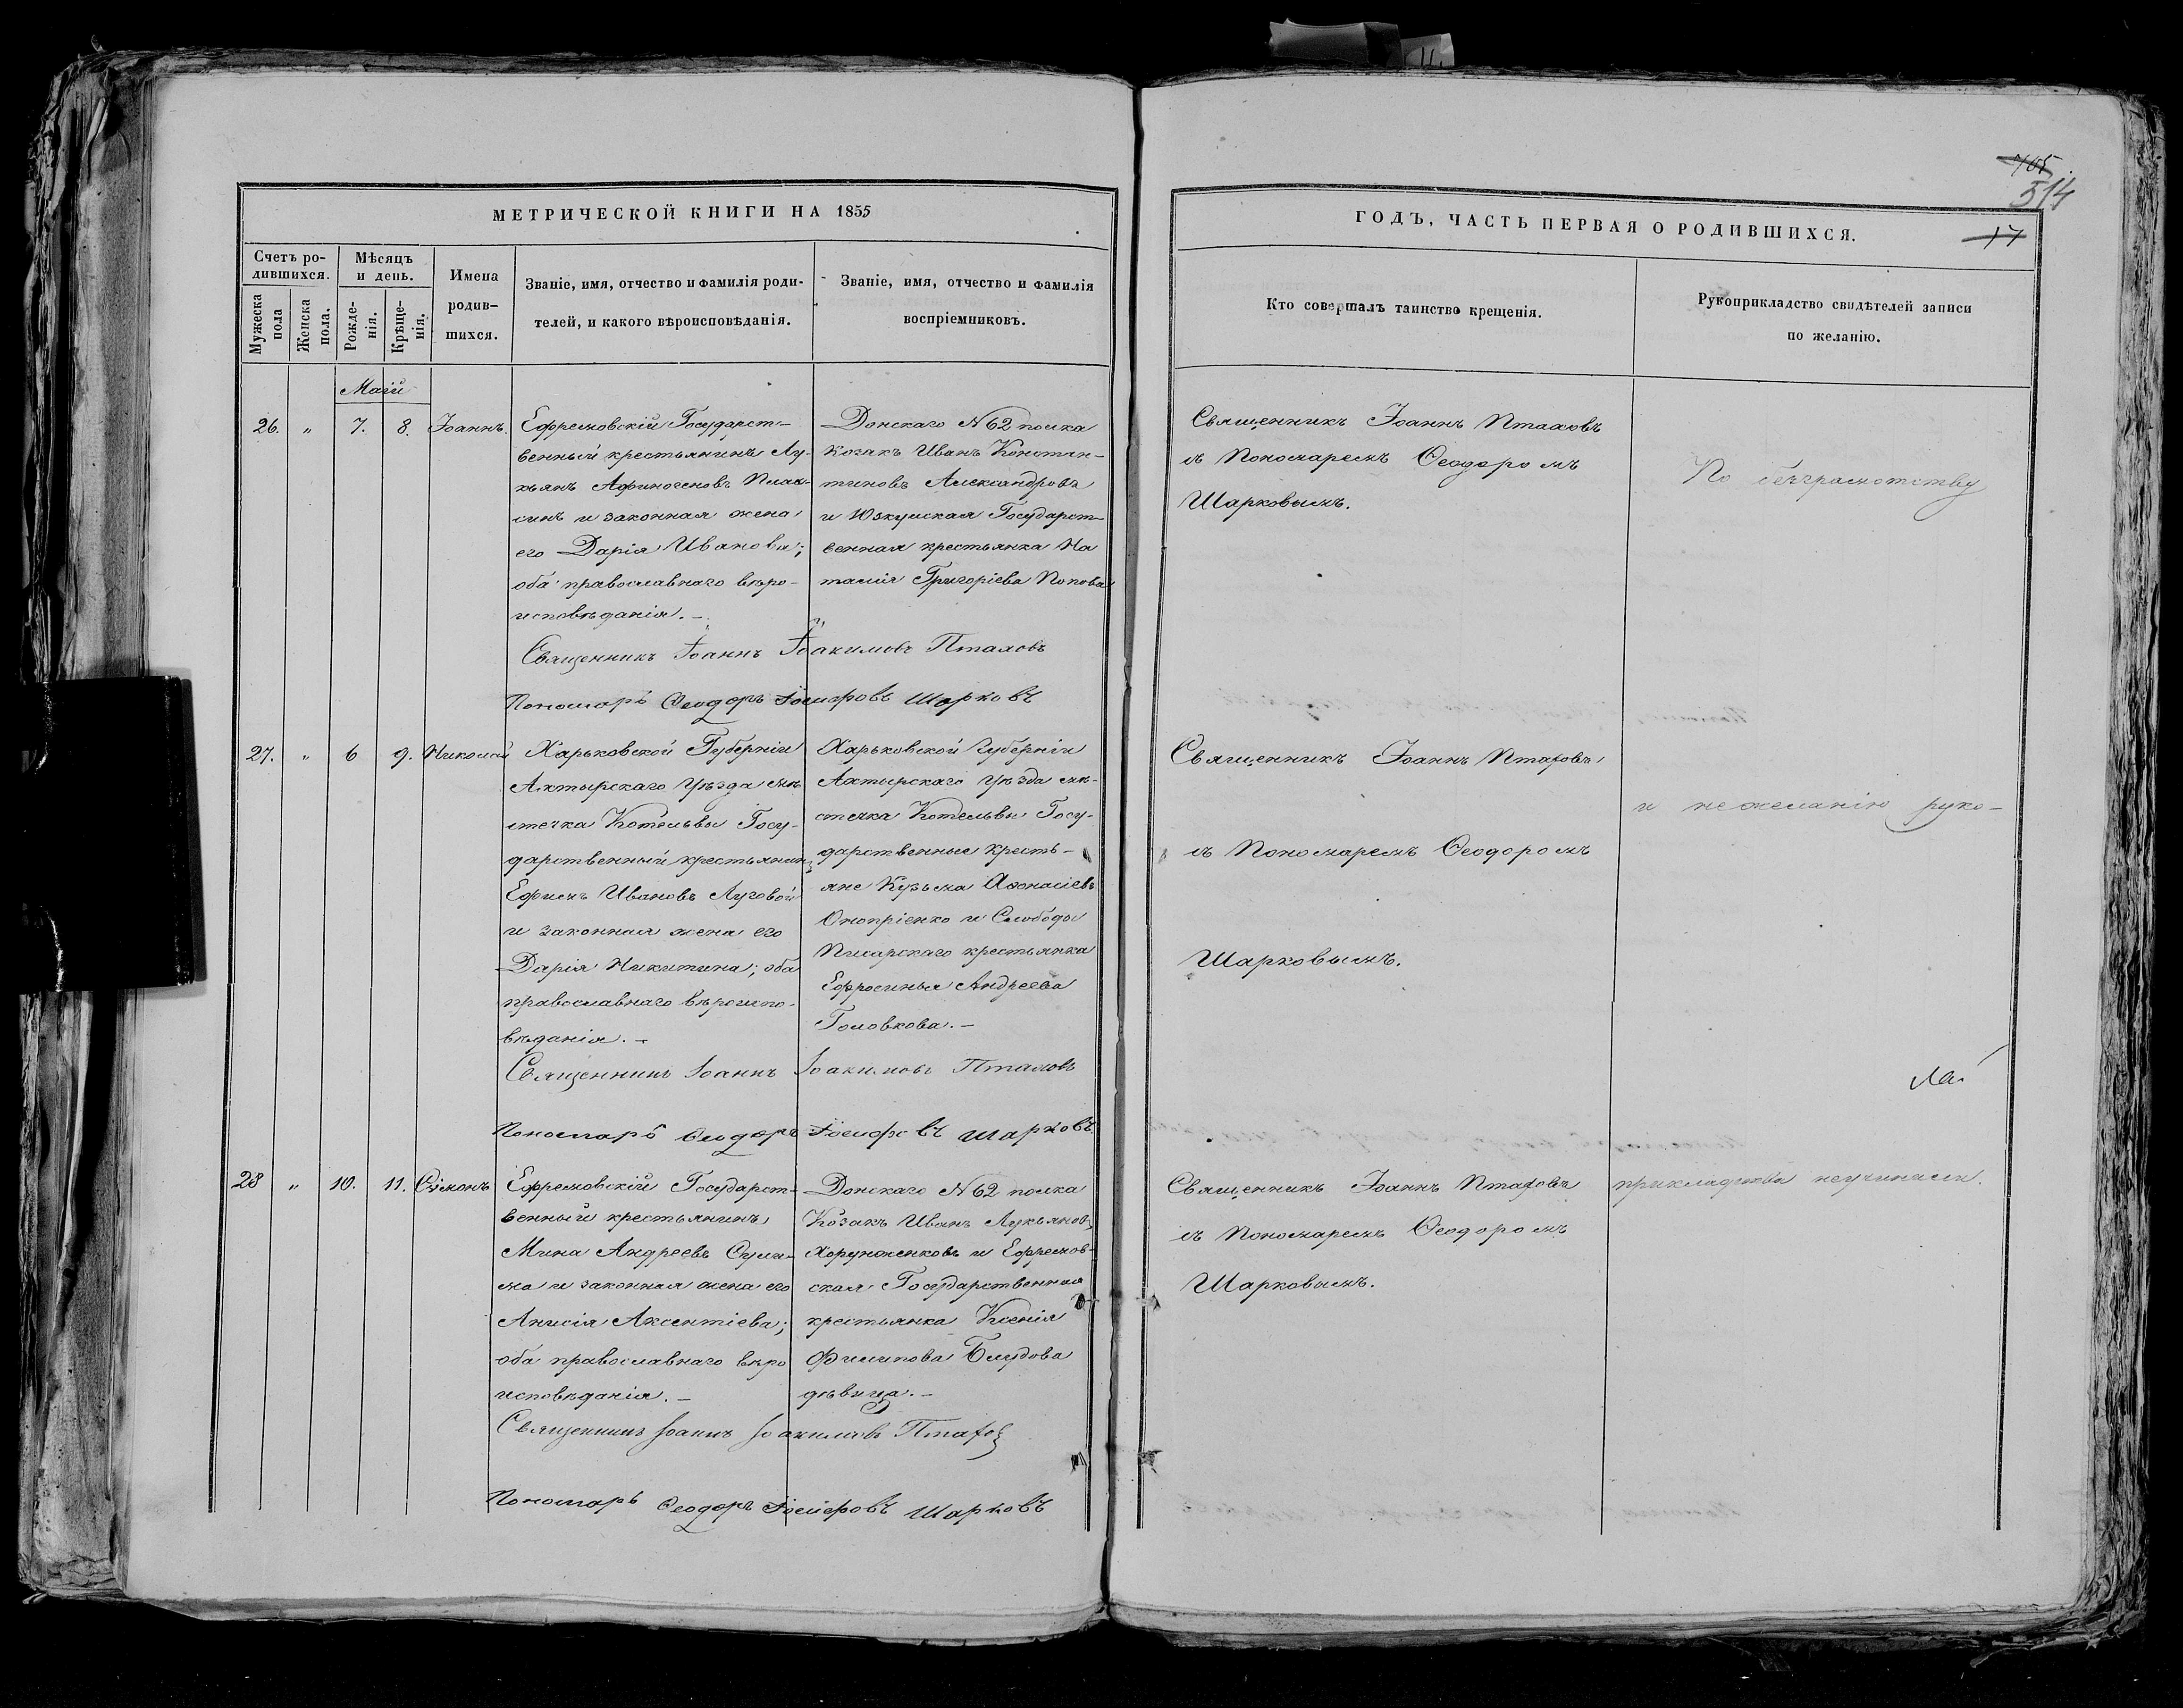 МЕТРИЧЕСКОЙ КНИГИ НА 1855
Счетъ ро-
дившихся.
Мужеска
пола
Женска
пола.
Мѣсяцъ
и день.
Рожде-
нія.
Крѣще-
нія.
Имена
родив-
шихся.
Званіе, имя, отчество и фамилія роди-
телей, и какого вѣроисповѣданія.
Званіе, имя, отчество и фамилія
воспріемниковъ.
Маій
26. „ 7. 8. Іоаннъ.
Ефремовскій Государст-
венный крестьянинъ Лу-
кьянъ Афиногеновъ
и законная жена
его Дарія Иванова;
оба православнаго вѣро-
исповѣданія. –
Донскаго N 62 полка
козакъ Иванъ Констан-
тиновъ Александровъ
и Государст-
венная крестьянка На
талія Григоріева Попова
Священникъ Іоаннъ Іоакимовъ Птаховъ
Пономарь Ѳеодоръ Іосифовъ Шарковъ
27. „ 6 9. Николай
Харьковской Губерніи
Ахтырскаго Уѣзда мѣ
стечка Котельвы Госу-
дарственный крестьянинъ
Ефимъ Ивановъ Луговой
и законная жена его
Дарія Никитина; оба
православнаго вѣроиспо-
вѣданія. –
Харьковской Губерніи
Ахтырскаго Уѣзда мѣ-
стечка Котельвы Госу-
дарственные кресть-
яне Кузьма Аѳонасіевъ
Онопріенко и Слободы
Писарскаго крестьянка
Ефросинья Андреева
Головкова. –
Священникъ Іоаннъ Іоакимовъ Птаховъ
Пономарь Ѳеодоръ Іосифовъ Шарковъ
28 „ 10. 11. Сімонъ
Ефремовскій Государст-
венный крестьянинъ
Мина Андреевъ Сули-
ма и законная жена его
Анисія Аксентіева;
оба православнаго вѣро
исповѣданія. –
Донскаго N 62 полка
Козакъ Иванъ Лукьяновъ
Хорунженковъ и Ефремов-
ская Государственная
крестьянка Ксенія
Филипова Блудова
дѣвица. –
Священникъ Іоаннъ Іоакимовъ Птаховъ
Пономарь Ѳеодоръ Іосифовъ Шарковъ
705
514
17
ГОДЪ, ЧАСТЬ ПЕРВАЯ О РОДИВШИХСЯ.
Кто совершалъ таинство крещенія.
Рукоприкладство свидѣтелей записи
по желанію.
Священникъ Іоаннъ Птаховъ
съ Пономаремъ Ѳеодоромъ
Шарковымъ.
По безграмотству
Священникъ Іоаннъ Птаховъ
съ Пономаремъ Ѳеодоромъ
Шарковымъ.
и нежеланію руко-
Священникъ Іоаннъ Птаховъ
съ Пономаремъ Ѳеодоромъ
Шарковымъ.
прикладства неучинили.